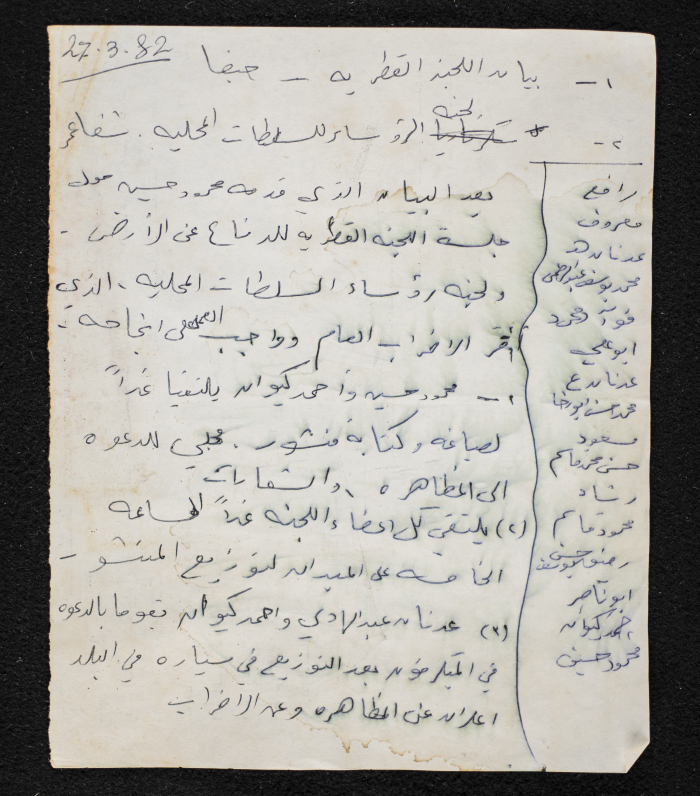 27.3.82
١- بيان اللجنة القطريه - حيفا
٢- لجنه الرؤساء للسلطات المحليه. شفاعمر
بعد البيان الذي قدمه محمود حسين حول
جلسة اللجنه القطريه للدفاع عن الأرض -
ولجنه رؤساء السلطات المحليه، الذي
أقر الاضراب العام وواجب العمل على انجاحه:
١- محمود حسين وأحمد كيوان يلتقيا غداً
لصياغه وكتابة منشور محلي للدعوه
الى المظاهره، والشعارات
(٢) يلتقي كل اعضاء اللجنه غداً الساعه
الخامسه على الميدان لتوزيع المنشور -
(٣) عدنان عبد الهادي واحمد كيوان يقوما بالدعوه
في المكرفون بعد التوزيع في سياره في البلد
اعلان عن المظاهره وعن الاضراب
رافع
معروف
عدنان هـ
محمد يوسف
فواز محمود
ابو علي
عدنان ع
محمد حسن ابو
مسعود
حسن محمد قاسم
رشاد
محمود قاسم
حسن
ابو ناصر
احمد كيوان
محمود حسين